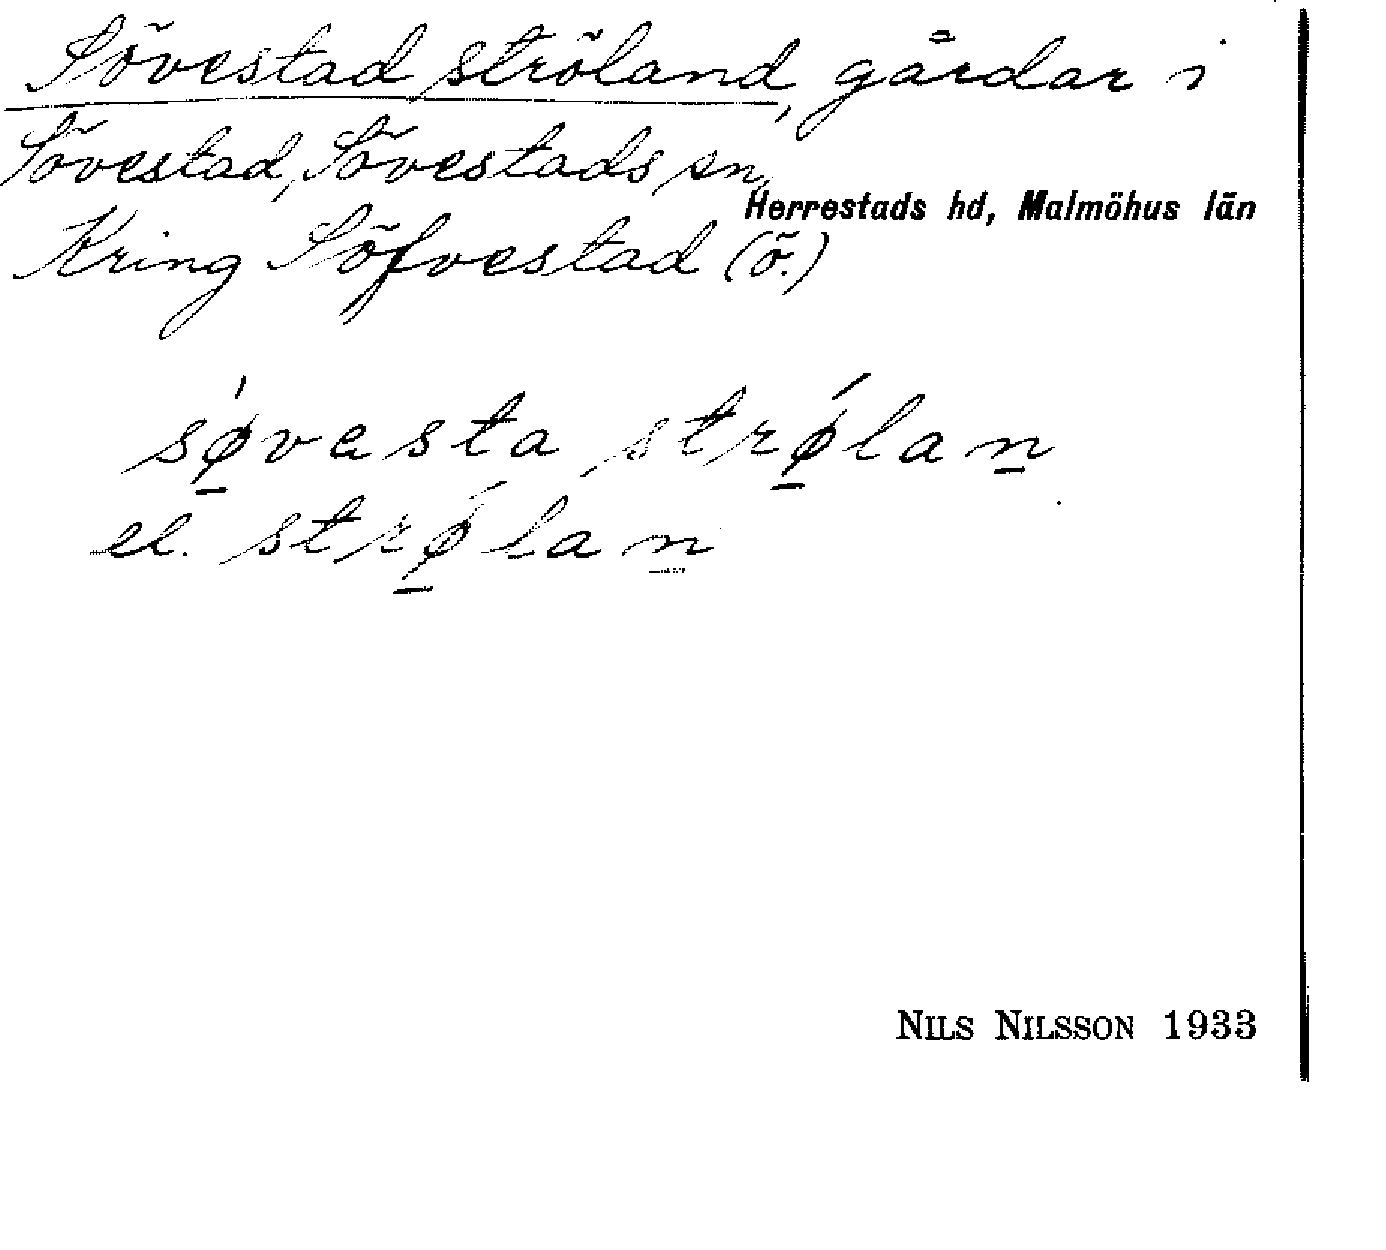 Sövestad ströland, gårdar i
Sövestad, Sövestads sn,
Herrestads hd, Malmöhus län
Kring Söfvestad (ö.)
sǿ̱vesta strǿ̱lan̲
el. strǿ̱lan̲
NILS NILSSON 1933